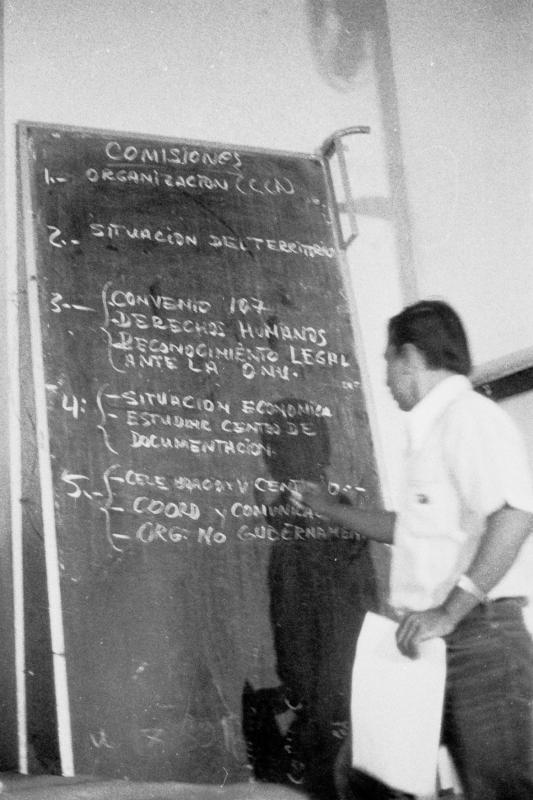 COMISIONES
1.- ORGANIZACION (CCCN)
2.- SITUACION DEL TERRITORIO
3.- CONVENIO 107
DERECHOS HUMANOS
RECONOCIMIENTO LEGAL
ANTE LA ONU.
4: - SITUACION ECONOMICA
- ESTUDIAR CENTRO DE
DOCUMENTACION.
5.- - V CENT
- COORD Y COMUNICA
- ORG. NO GUBERNAMEN